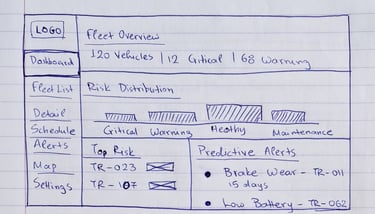 LOGO
Fleet Overview
120 Vehicles | 12 Critical | 68 Warning
Dashboard
Fleet List
Detail
Schedule
Alerts
Map
Settings
Risk Distribution
Critical Warning Healthy Maintenance
Top Risk
TR-023
TR-107
Predictive Alerts
• Brake Wear - TR-011
15 days
• Low Battery - TR-062